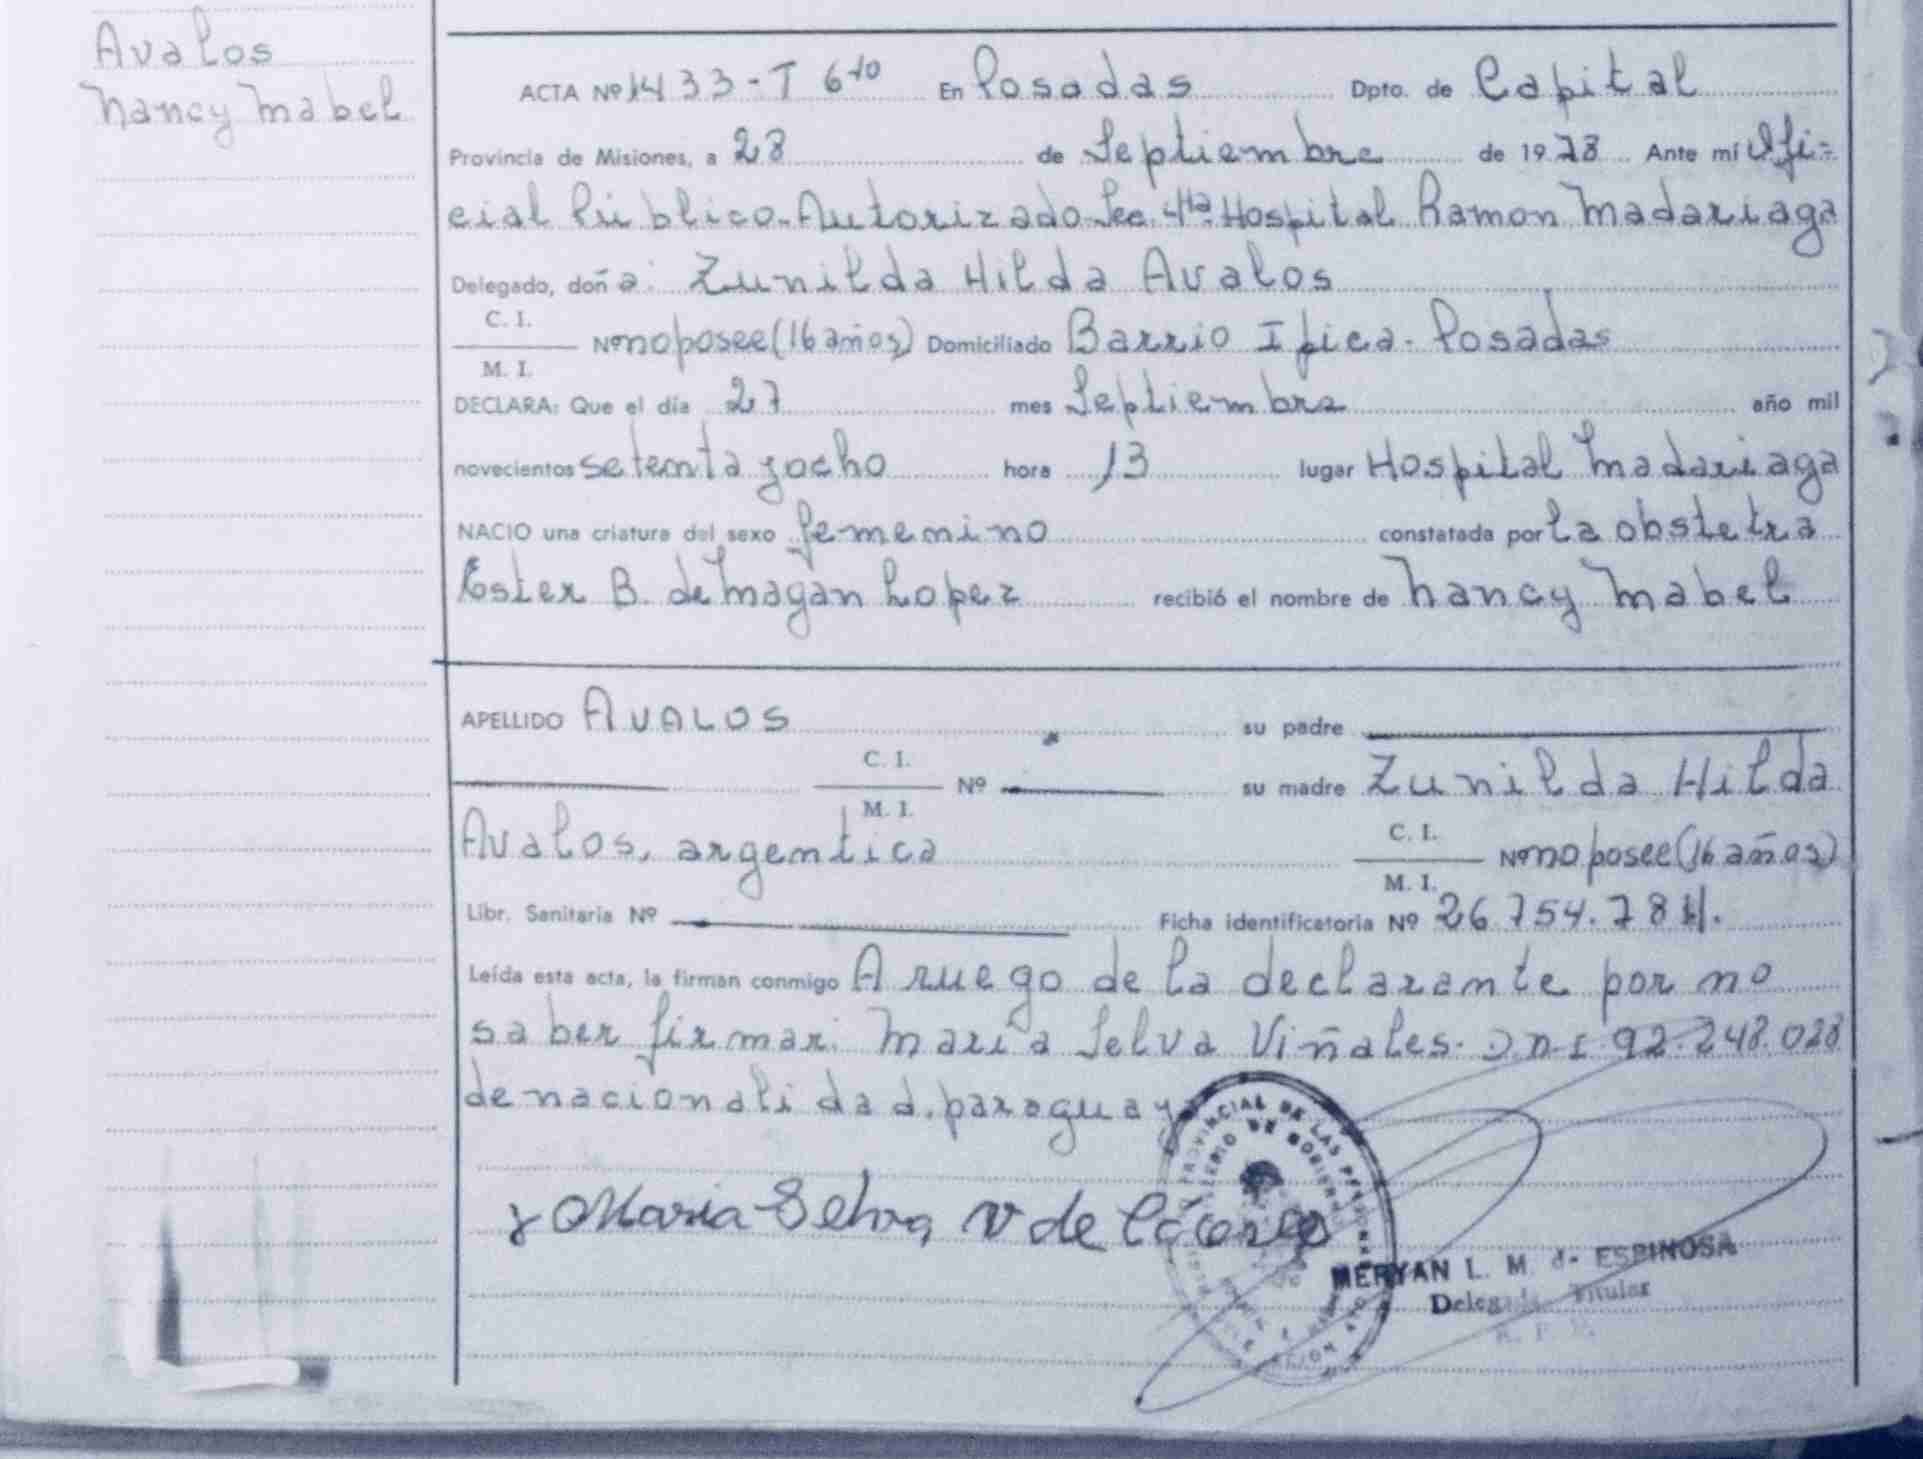 Avalos
Nancy Mabel
ACTA Nº 1433-T 6to En Posadas Dpto. de Capital
Provincia de Misiones, a 28 de Septiembre de 1978 Ante mí Ofi-
cial Público Autorizado Sec. 4ta. Hospital Ramon Madariaga
Delegado, doña: Zunilda Hilda Avalos
C. I.
M. I.
Nº no posee (16 años) Domiciliado Barrio Ipica - Posadas
DECLARA: Que el día 27 mes Septiembre año mil
novecientos setenta y ocho hora 13 lugar Hospital Madariaga
NACIO una criatura del sexo femenino constatada por la obstetra
Ester B. de Magan Lopez recibió el nombre de Nancy Mabel
APELLIDO AVALOS su padre
C. I.
M. I.
Nº su madre Zunilda Hilda
Avalos, argentica
C. I.
M. I.
Nº no posee (16 años)
Libr. Sanitaria Nº Ficha identificatoria Nº
Leída esta acta, la firman conmigo A ruego de la declarante por no
saber firmar: María Selva Viñales. D.N.I 92.248.028
de nacionalidad paraguaya
Maria Selva V de Cáceres
PROVINCIAL DE LAS PERSONAS
MERYAN L. M. de ESPINOSA
Delegada Titular
R. P. P.